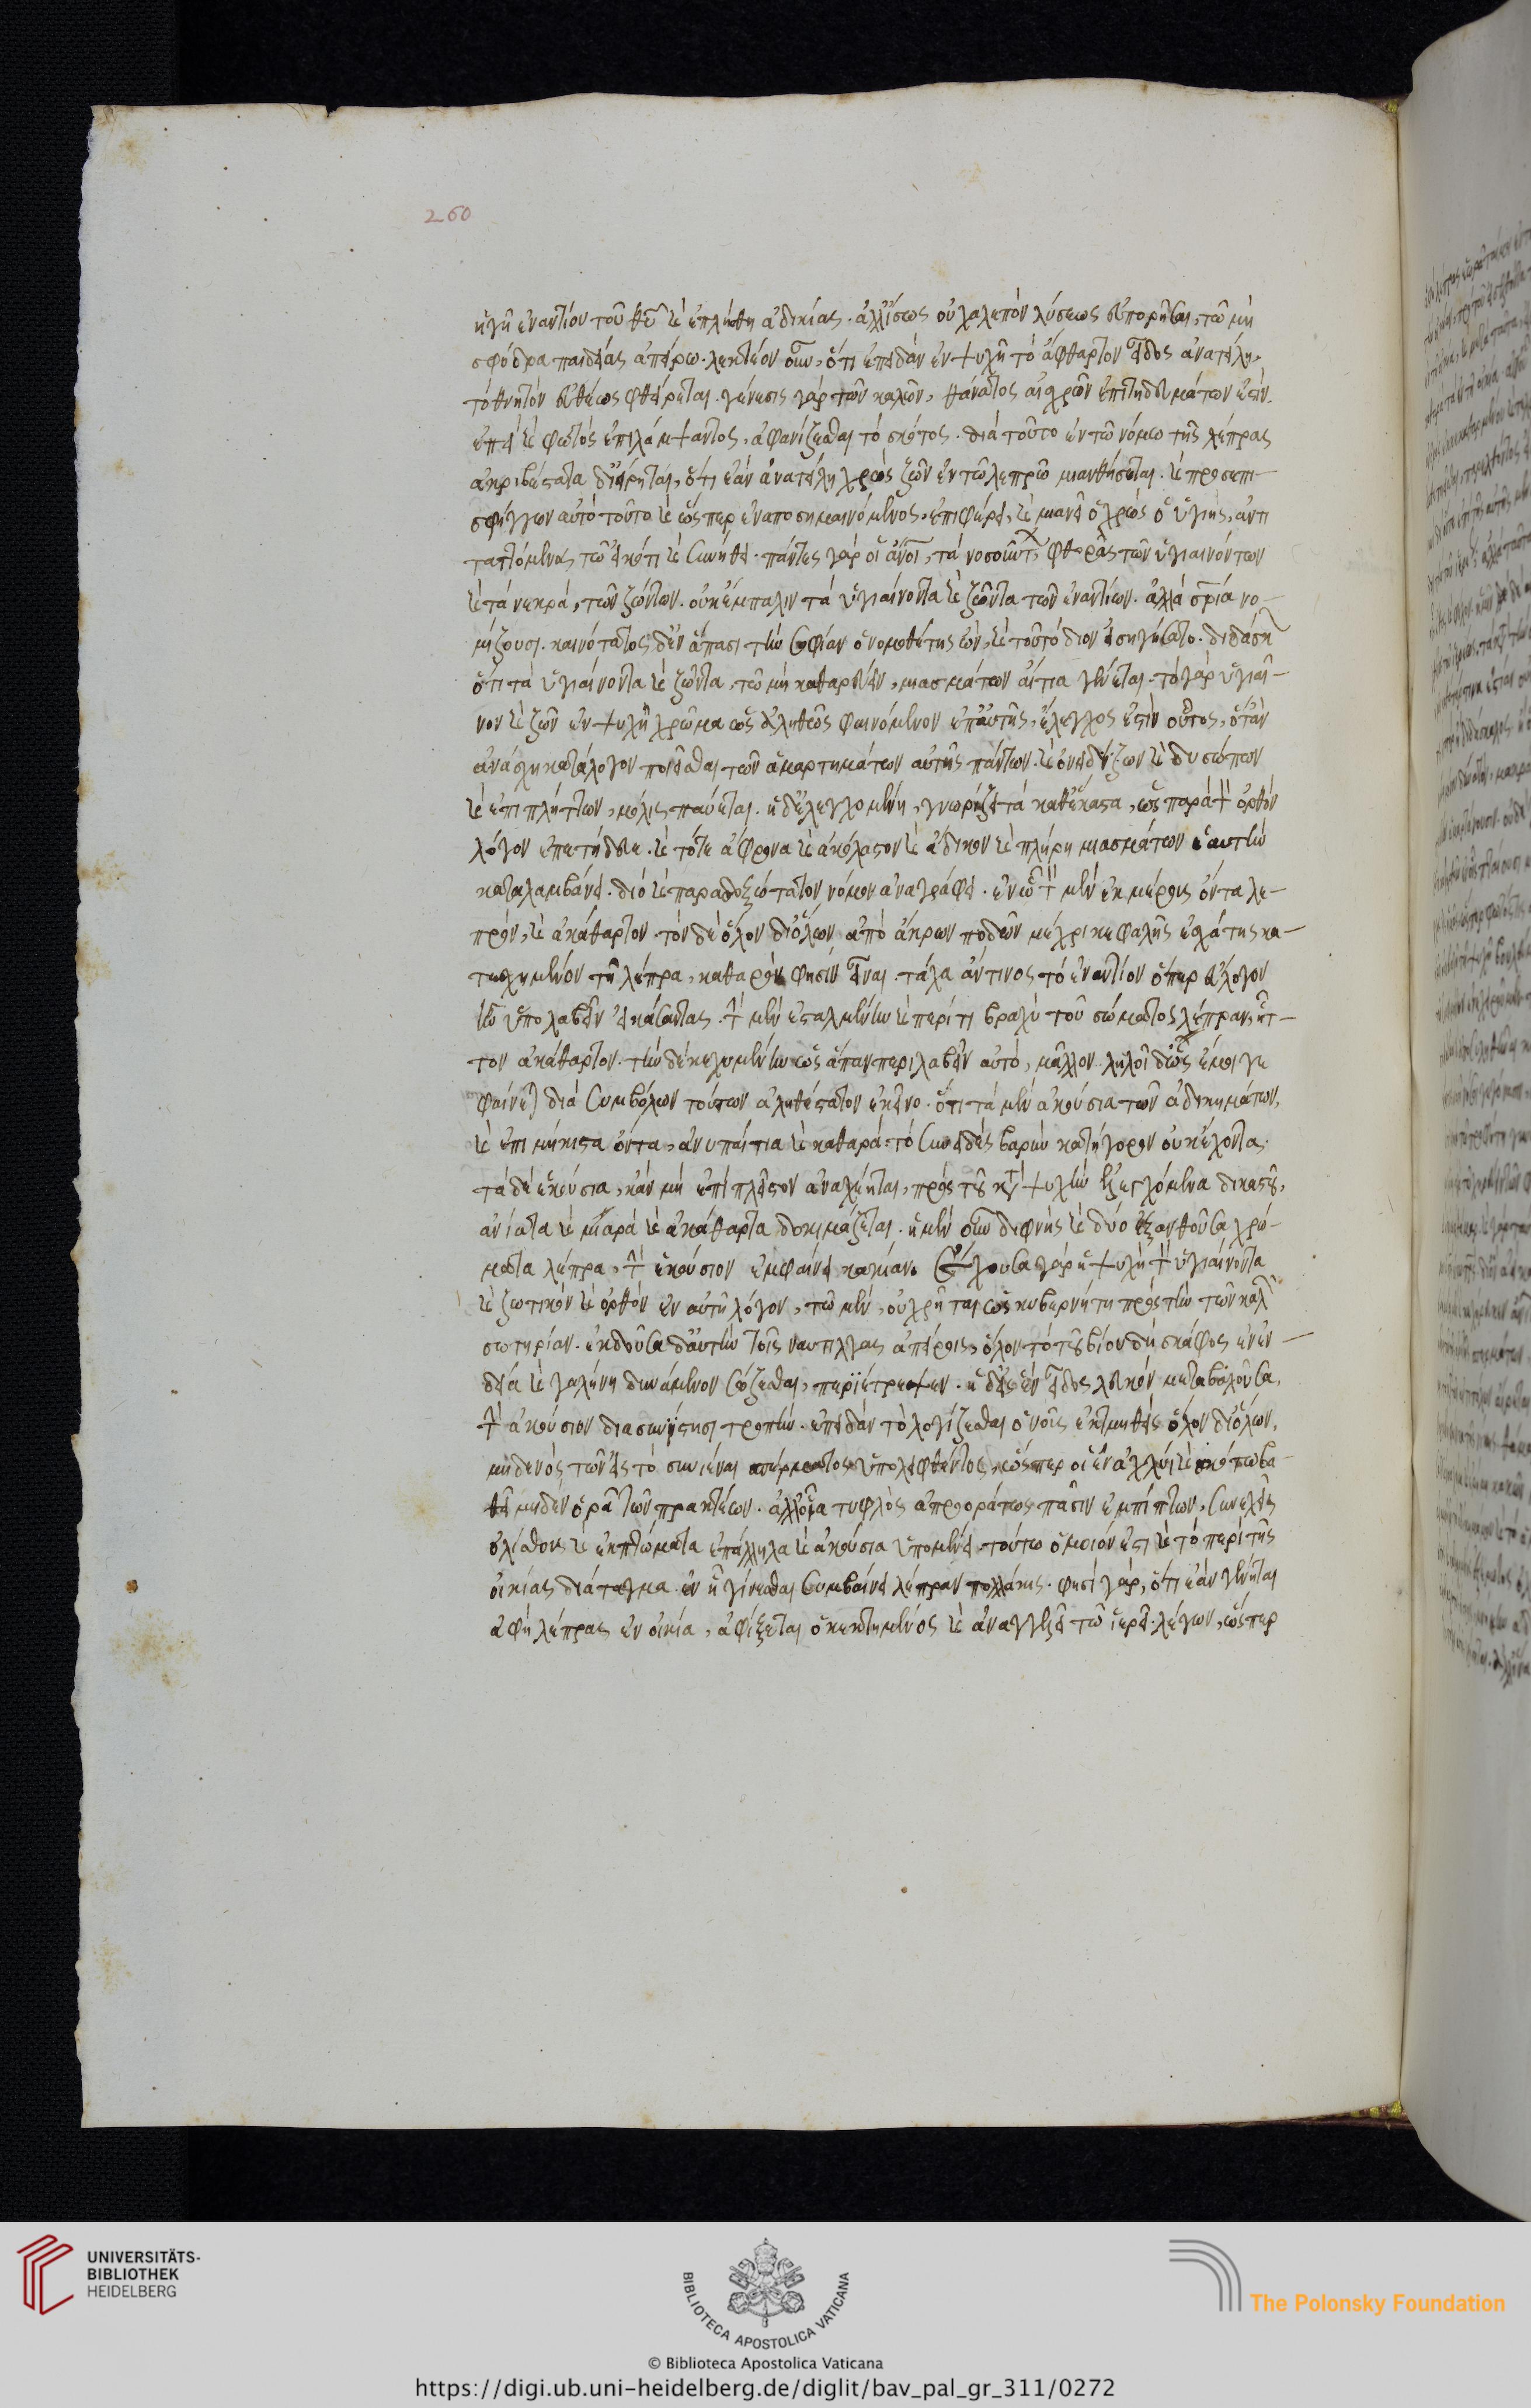 260
ἡ γῆ ἐναντίον τοῦ θῦ καὶ ἐπλήσθη ἀδικίας. ἀλλ' ἴσως οὐ χαλεπὸν λύσεως εὐπορῆσαι, τῶ μὴ
σφόδρα παιδείας ἀπείρω. λεκτέον οὖν, ὅτι ἐπειδὰν ἐν ψυχῆ τὸ ἄφθαρτον εἶδος ἀνατείλη,
τὸ θνητὸν εὐθέως φθείρεται. γένεσις γὰρ τῶν καλῶν, θάνατος αἰσχρῶν ἐπιτηδευμάτων ἐστίν.
ἐπεὶ καὶ φωτὸς ἐπιλάμψαντος, ἀφανίζεσθαι τὸ σκότος. διὰ τοῦτο ἐν τῶ νόμω τῆς λέπρας
ἀκριβέστατα διείρηται, ὅτι ἐὰν ἀνατείλη χρὼς ζῶν ἐν τῶ λεπρῶ μιανθήσεται. καὶ προσεπι-
σφίγγων αὐτὸ τοῦτο καὶ ὥσπερ ἐναποσημαινόμενος, ἐπιφέρει, καὶ μιανεῖ ὁ χρὼς ὁ ὑγιής, ἀντι
ταττόμενος τῶ εἰκότι καὶ συνήθει. πάντες γὰρ οἱ ἄνοι, τὰ νοσοῦντα, φθορὰς τῶν ὑγιαινόντων
καὶ τὰ νεκρά, τῶν ζώντων. οὐκ ἔμπαλιν τὰ ὑγιαίνοντα καὶ ζῶντα τῶν ἐναντίων. ἀλλὰ σρία νο-
μίζουσι. καινότατος δ' ἐν ἅπασι τὴν σοφίαν ὁ νομοθέτης ὢν, καὶ τοῦτο ἴδιον εἰσηγήσατο. διδάσκων
ὅτι τὰ ὑγιαίνοντα καὶ ζῶντα, τῶ μὴ καθαρεύειν, μιασμάτων αἴτια γίνεται. τὸ γὰρ ὑγιαῖ-
νον καὶ ζῶν ἐν ψυχῆ χρῶμα ὡς ἀληθῶς φαινόμενον ἐπ' αὐτῆς, ἔλεγχος ἐστὶν οὗτος, ὅταν
ἀνάσχη κατάλογον ποιεῖσθαι τῶν ἁμαρτημάτων αὐτῆς πάντων. καὶ ὀνειδίζων καὶ δυσωπῶν
καὶ ἐπιπλήττων, μόλις παύεται. ἡ δ' ἐλεγχομένη, γνωρίζει τὰ καθ' ἕκαστα, ὡς παρὰ τὸν ὀρθὸν
λόγον ἐπετήδευε. καὶ τότε ἄφρονα καὶ ἀκόλαστον καὶ ἄδικον καὶ πλήρη μιασμάτων ἑαυτὴν
καταλαμβάνει. διὸ καὶ παραδοξότατον νόμον ἀναγράφει. ἐν ὧ τὸν μὲν ἐκ μέρους ὄντα λε-
πρόν, καὶ ἀκάθαρτον. τὸν δὲ ὅλον δι' ὅλων ἀπὸ ἄκρων ποδῶν μέχρι κεφαλῆς ἐσχάτης κα-
τεσχημένον τῆ λέπρα, καθαρόν φησιν εἶναι. τάχα ἄν τινος τὸ ἐναντίον ὅπερ εὔλογον
ἦν ὑπολαβεῖν εἰκάσαντος. τὴν μὲν ἐσταλμένην καὶ περί τι βραχὺ τοῦ σώματος λέπραν, ἧτ-
τον ἀκάθαρτον. τὴν δὲ κεχυμένην ὡς ἅπαν περιλαβεῖν αὐτό, μᾶλλον. δηλοῖ δ' ὡς ἔμοι γε
φαίνεται διὰ συμβόλων τούτων ἀληθέστατον ἐκεῖνο. ὅτι τὰ μὲν ἀκούσια τῶν ἀδικημάτων,
καὶ ἐπιμήκιστα ὄντα, ἀνυπαίτια καὶ καθαρά. τὸ συνειδὸς βαρὺν κατήγορον οὐκ ἔχοντα.
τὰ δὲ ἑκούσια, κἂν μὴ ἐπὶ πλεῖστον ἀναχέηται, πρὸς τοῦ κατὰ ψυχὴν ἐξελεγχόμενα δικαστοῦ,
ἀνίατα καὶ μιαρὰ καὶ ἀκάθαρτα δοκιμάζεται. ἡ μὲν οὖν διφυὴς καὶ δύο ἐξανθοῦσα χρώ-
ματα λέπρα, τὴν ἑκούσιον ἐμφαίνει κακίαν. ἔχουσα γὰρ ἡ ψυχὴ τὸν ὑγιαίνοντα
καὶ ζωτικὸν καὶ ὀρθὸν ἐν αὐτῆ λόγον, τῶ μὲν, οὐ χρῆται ὡς κυβερνήτη πρὸς τὴν τῶν καλῶν
σωτηρίαν. ἐκδοῦσα δ' αὑτὴν τοῖς ναυτιλίας ἀπείροις, ὅλον τὸ τοῦ βίου δὴ σκάφος ἐν εὐ-
δία καὶ γαλήνη δυνάμενον σώζεσθαι, περιέτρεψεν. ἡ δ' εἰς ἓν εἶδος λευκὸν μεταβαλοῦσα,
τὴν ἀκούσιον διασυνίστησι τροπήν. ἐπειδὰν τὸ λογίζεσθαι ὁ νοῦς ἐκτμηθεὶς ὅλον δι' ὅλων,
μηδενὸς τῶν εἰς τὸ συνιέναι σπέρματος ὑπολειφθέντος, ὥσπερ οἱ ἐν ἀχλύϊ καὶ σκότω βα-
θεῖ μηδὲν ὁρᾶ τῶν πρακτέων. ἀλλ' οἷα τυφλὸς ἀπροοράτως πᾶσιν ἐμπίπτων, συνεχεῖς
ὀλίσθους καὶ ἐκπτώματα ἐπάλληλα καὶ ἀκούσια ὑπομένει. τούτω ὅμοιόν ἐστι καὶ τὸ περὶ τῆς
οἰκίας διάταγμα. ἐν ἧ γίνεσθαι συμβαίνει λέπραν πολλάκις. φησὶ γάρ, ὅτι ἐὰν γένηται
ἁφὴ λέπρας ἐν οἰκία, ἀφίξεται ὁ κεκτημένος καὶ ἀναγγελεῖ τῶ ἱερεῖ λέγων, ὥσπερ
UNIVERSITÄTS-
BIBLIOTHEK
HEIDELBERG
BIBLIOTECA APOSTOLICA VATICANA
The Polonsky Foundation
© Biblioteca Apostolica Vaticana
https://digi.ub.uni-heidelberg.de/diglit/bav_pal_gr_311/0272